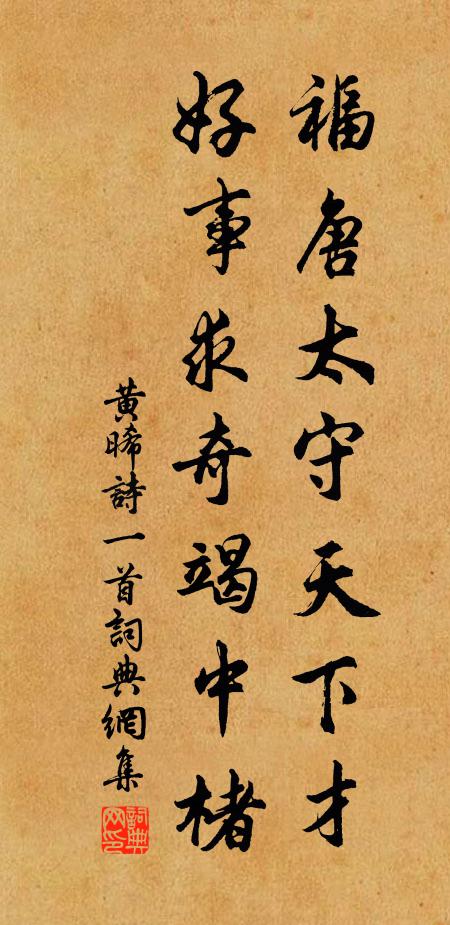 福唐太守天下才
好事求奇竭中楮
黄晞詩一首詞典網集
詞典網印